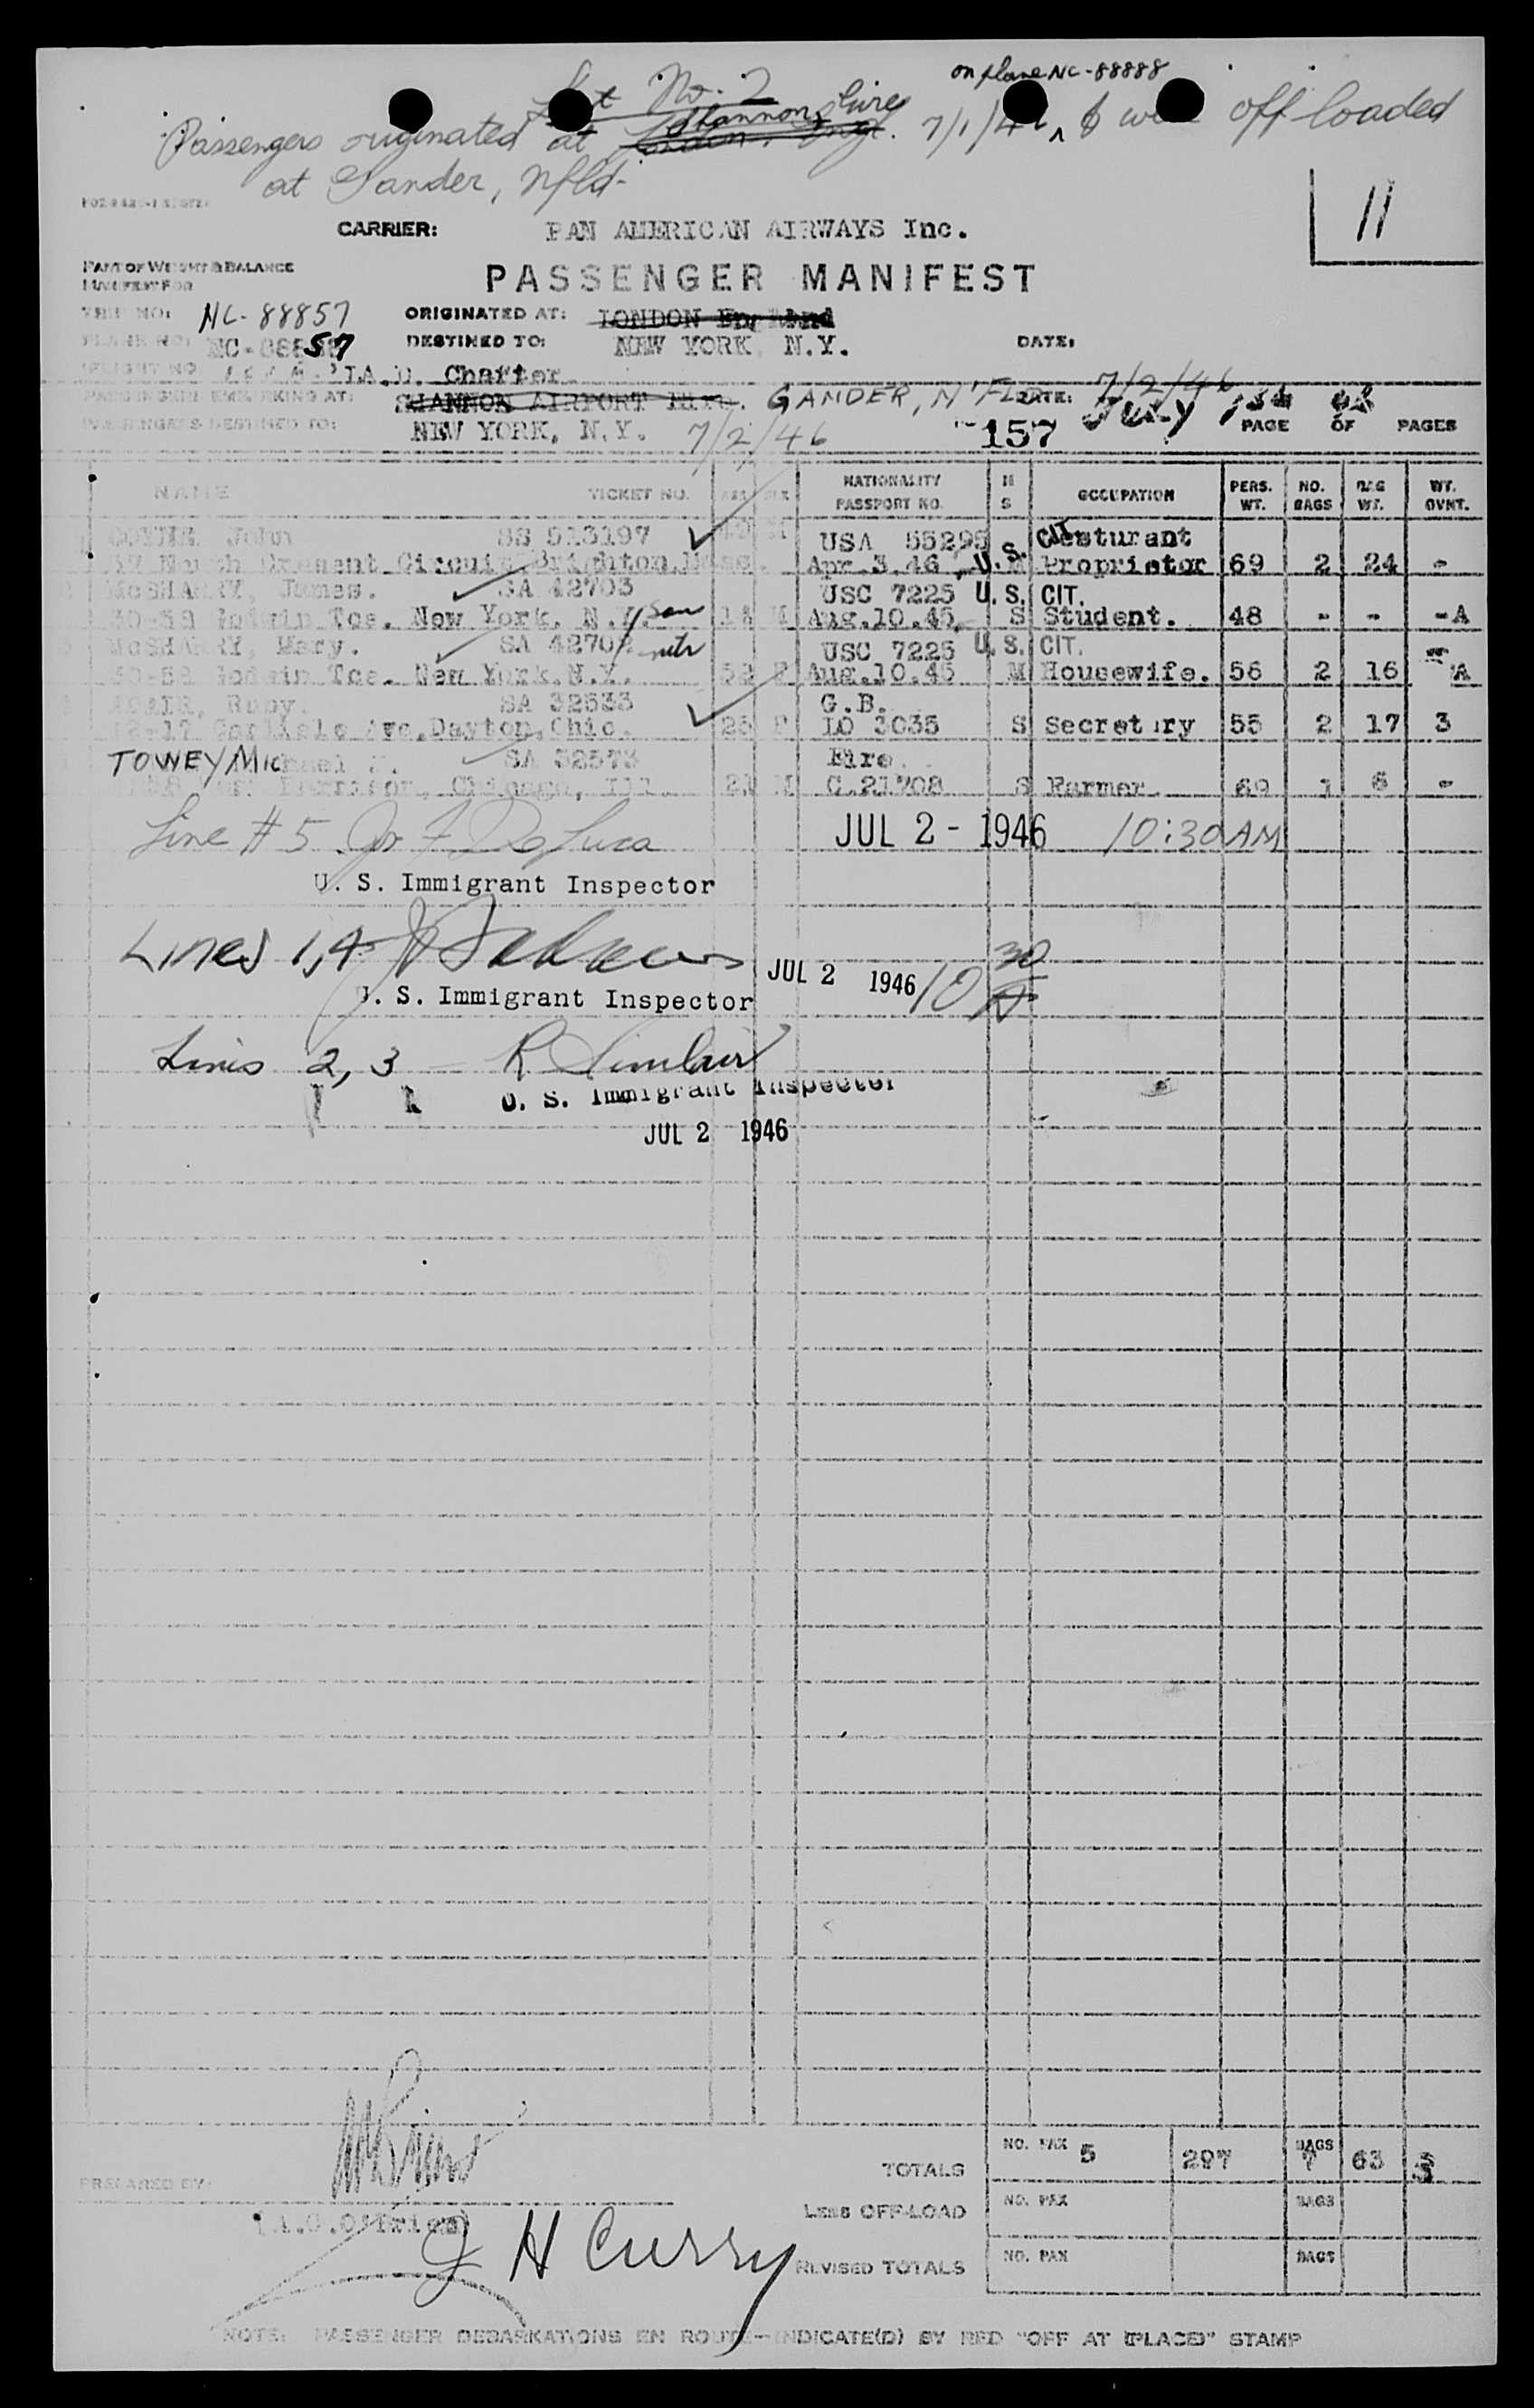 on plane NC-88888
No. 2
Shannon, Eire
Passengers originated at London, Engl. 7/1/46, & were off loaded
at Gander, Nfld-
11
CARRIER: PAN AMERICAN AIRWAYS Inc.
PART OF WEIGHT & BALANCE
MANIFEST FOR
PASSENGER MANIFEST
TRIP NO: NC-88857
ORIGINATED AT: LONDON England
PLANE NO: NC-88857
DESTINED TO: NEW YORK N.Y.
DATE:
FLIGHT NO. Charter
PASSENGERS EMBARKING AT: SHANNON AIRPORT Eire. GANDER, N'FLD DATE: 7/2/46
July 1st
PASSENGERS DESTINED TO: NEW YORK, N.Y. 7/2/46 157 PAGE OF PAGES
NAME TICKET NO. AGE SEX NATIONALITY PASSPORT NO. M S OCCUPATION PERS. WT. NO. BAGS BAG WT. WT. OVNT.
COYNE John SS 513197 M USA 55295 U.S. CIT. Resturant
Circuit, Brighton, Mass. Apr.3.46 M Proprietor 69 2 24 -
McSHARRY, James. SA 42703 USC 7225 U.S. CIT.
Tce. New York. N.Y. Son M Aug.10.45. S Student. 48 - - -A
McSHARRY, Mary. SA 42702 USC 7225 U.S. CIT.
Tce. New York. N.Y. 52 F Aug.10.45 M Housewife. 56 2 16 A
Ruby. SA 32533 G.B.
Ave. Dayton, Ohio. 25 F LO 3035 S Secretary 55 2 17 3
TOWEY Michael SA 32573 Eire.
Chicago, Ill M C.21708 S Farmer 69 1 6 -
Line #5 DeLuca JUL 2 - 1946 10:30 AM
U. S. Immigrant Inspector
Lines 1,4 JUL 2 1946 10 30 A
U. S. Immigrant Inspector
Lines 2, 3 - R Sinclair
U. S. Immigrant Inspector
JUL 2 1946
TOTALS NO. PAX 5 297 BAGS 7 63 3
PREPARED BY:
LESS OFF-LOAD NO. PAX BAGS
J H Curry
REVISED TOTALS NO. PAX BAGS
NOTE: PASSENGER DEBARKATIONS EN ROUTE-INDICATE(D) BY RED "OFF AT (PLACE)" STAMP